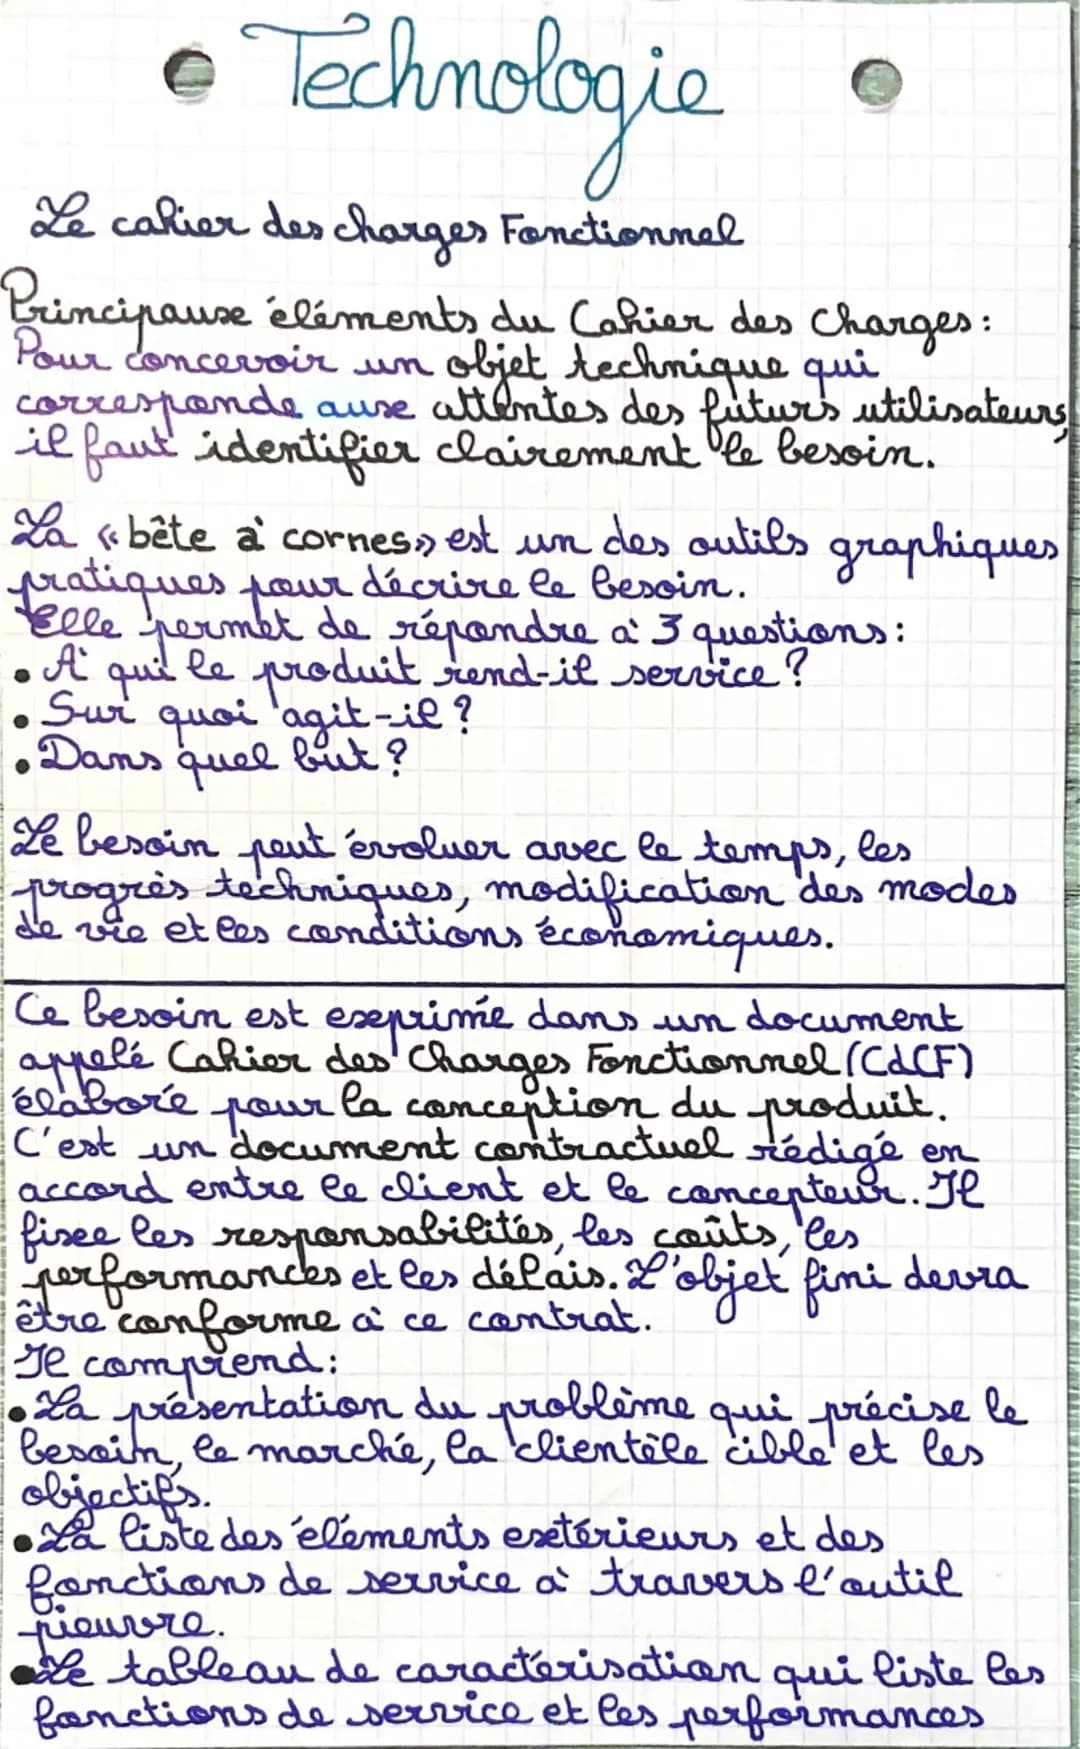 Technologie
Le cahier des charges Fonctionnel
Principaux éléments du Cahier des Charges:
Pour concevoir un objet technique qui
corresponde aux attentes des futurs utilisateurs,
il faut identifier clairement le besoin.
La «bête à cornes» est un des outils graphiques
pratiques pour décrire le besoin.
Elle permet de répondre à 3 questions:
• À qui le produit rend-il service?
• Sur quoi agit-il?
• Dans quel but?
Le besoin peut évoluer avec le temps, les
progrès techniques, modification des modes
de vie et les conditions économiques.
Ce besoin est exprimé dans un document
appelé Cahier des Charges Fonctionnel (CdCF)
élaboré pour la conception du produit.
C'est un document contractuel rédigé en
accord entre le client et le concepteur. Il
fixe les responsabilités, les coûts, les
performances et les délais. L'objet fini devra
être conforme à ce contrat.
Il comprend:
• La présentation du problème qui précise le
besoin, le marché, la clientèle cible et les
objectifs.
• La liste des éléments extérieurs et des
fonctions de service à travers l'outil
pieuvre.
• Le tableau de caractérisation qui liste les
fonctions de service et les performances